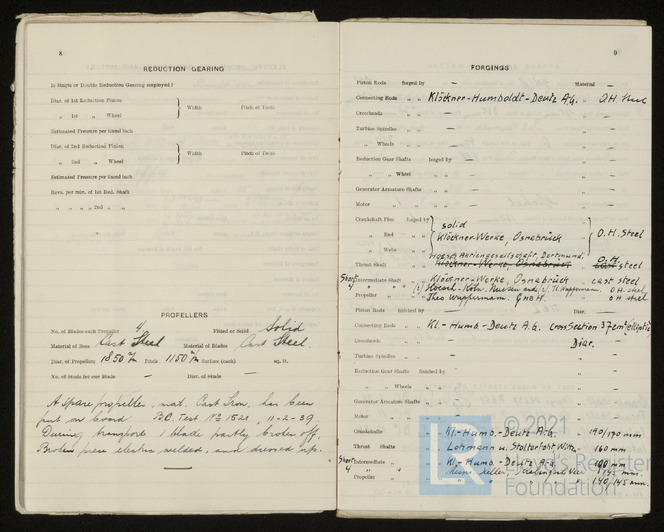 8
REDUCTION GEARING
Is Single or Double Reduction Gearing employed?
Diar. of 1st Reduction Pinion
Width Pitch of Teeth
" 1st " Wheel
Estimated Pressure per lineal inch
Diar. of 2nd Reduction Pinion
Width Pitch of Teeth
" 2nd " Wheel
Estimated Pressure per lineal inch
Revs. per min. of 1st Red. Shaft
" " " 2nd "
PROPELLERS
No. of Blades each Propeller 4 Fitted or Solid Solid
Material of Boss Cast Steel Material of Blades Cast Steel.
Diar. of Propellers 1850 m/m Pitch 1150 m/m Surface (each) sq. ft.
No. of Studs for each Blade — Diar. of Studs —
A spare propeller, mat. Cast Iron, has been
put on board. B.C. Test No 1521, 11-2-39
During transport 1 blade partly broken off,
Broken piece electric welded, and dressed up.
9
FORGINGS
Piston Rods forged by — Material —
Connecting Rods " " Klöckner-Humboldt-Deutz A.G. " O.H. Steel
Crossheads " " —
Turbine Spindles " " —
" Wheels " " —
Reduction Gear Shafts forged by —
" " Wheel " " —
Generator Armature Shafts " " —
Motor " " " —
Crankshaft Pins forged by solid
" Rad " Klöckner-Werke, Osnabrück " O.H. Steel
" Webs "
Hoesch Aktiengesellschaft, Dortmund. O.H.
Thrust Shaft " Klöckner-Werke, Osnabrück " cast steel
Short 4 Intermediate Shaft " Klöckner-Werke, Osnabrück cast steel
O.H. steel
Propeller " " Theo Wuppermann. GmbH. O.H. steel
Piston Rods finished by — Diar. —
Connecting Rods " " Kl.-Humb.-Deutz A.G. Cross Section
Crossheads " " — Diar.
Turbine Spindles " " —
Reduction Gear Shafts finished by —
" " Wheels " " —
Generator Armature Shafts " " —
Motor " " " —
Crankshafts " " Kl.-Humb.-Deutz A.G. " 190/190 mm
Thrust Shafts " " Lohmann u. Stolterfoht, Witten " 160 mm
Short 4 Intermediate " " Kl.-Humb.-Deutz A.G.
Propeller " " " 140/145 mm.
LR
© 2021
Lloyd's Register
Foundation